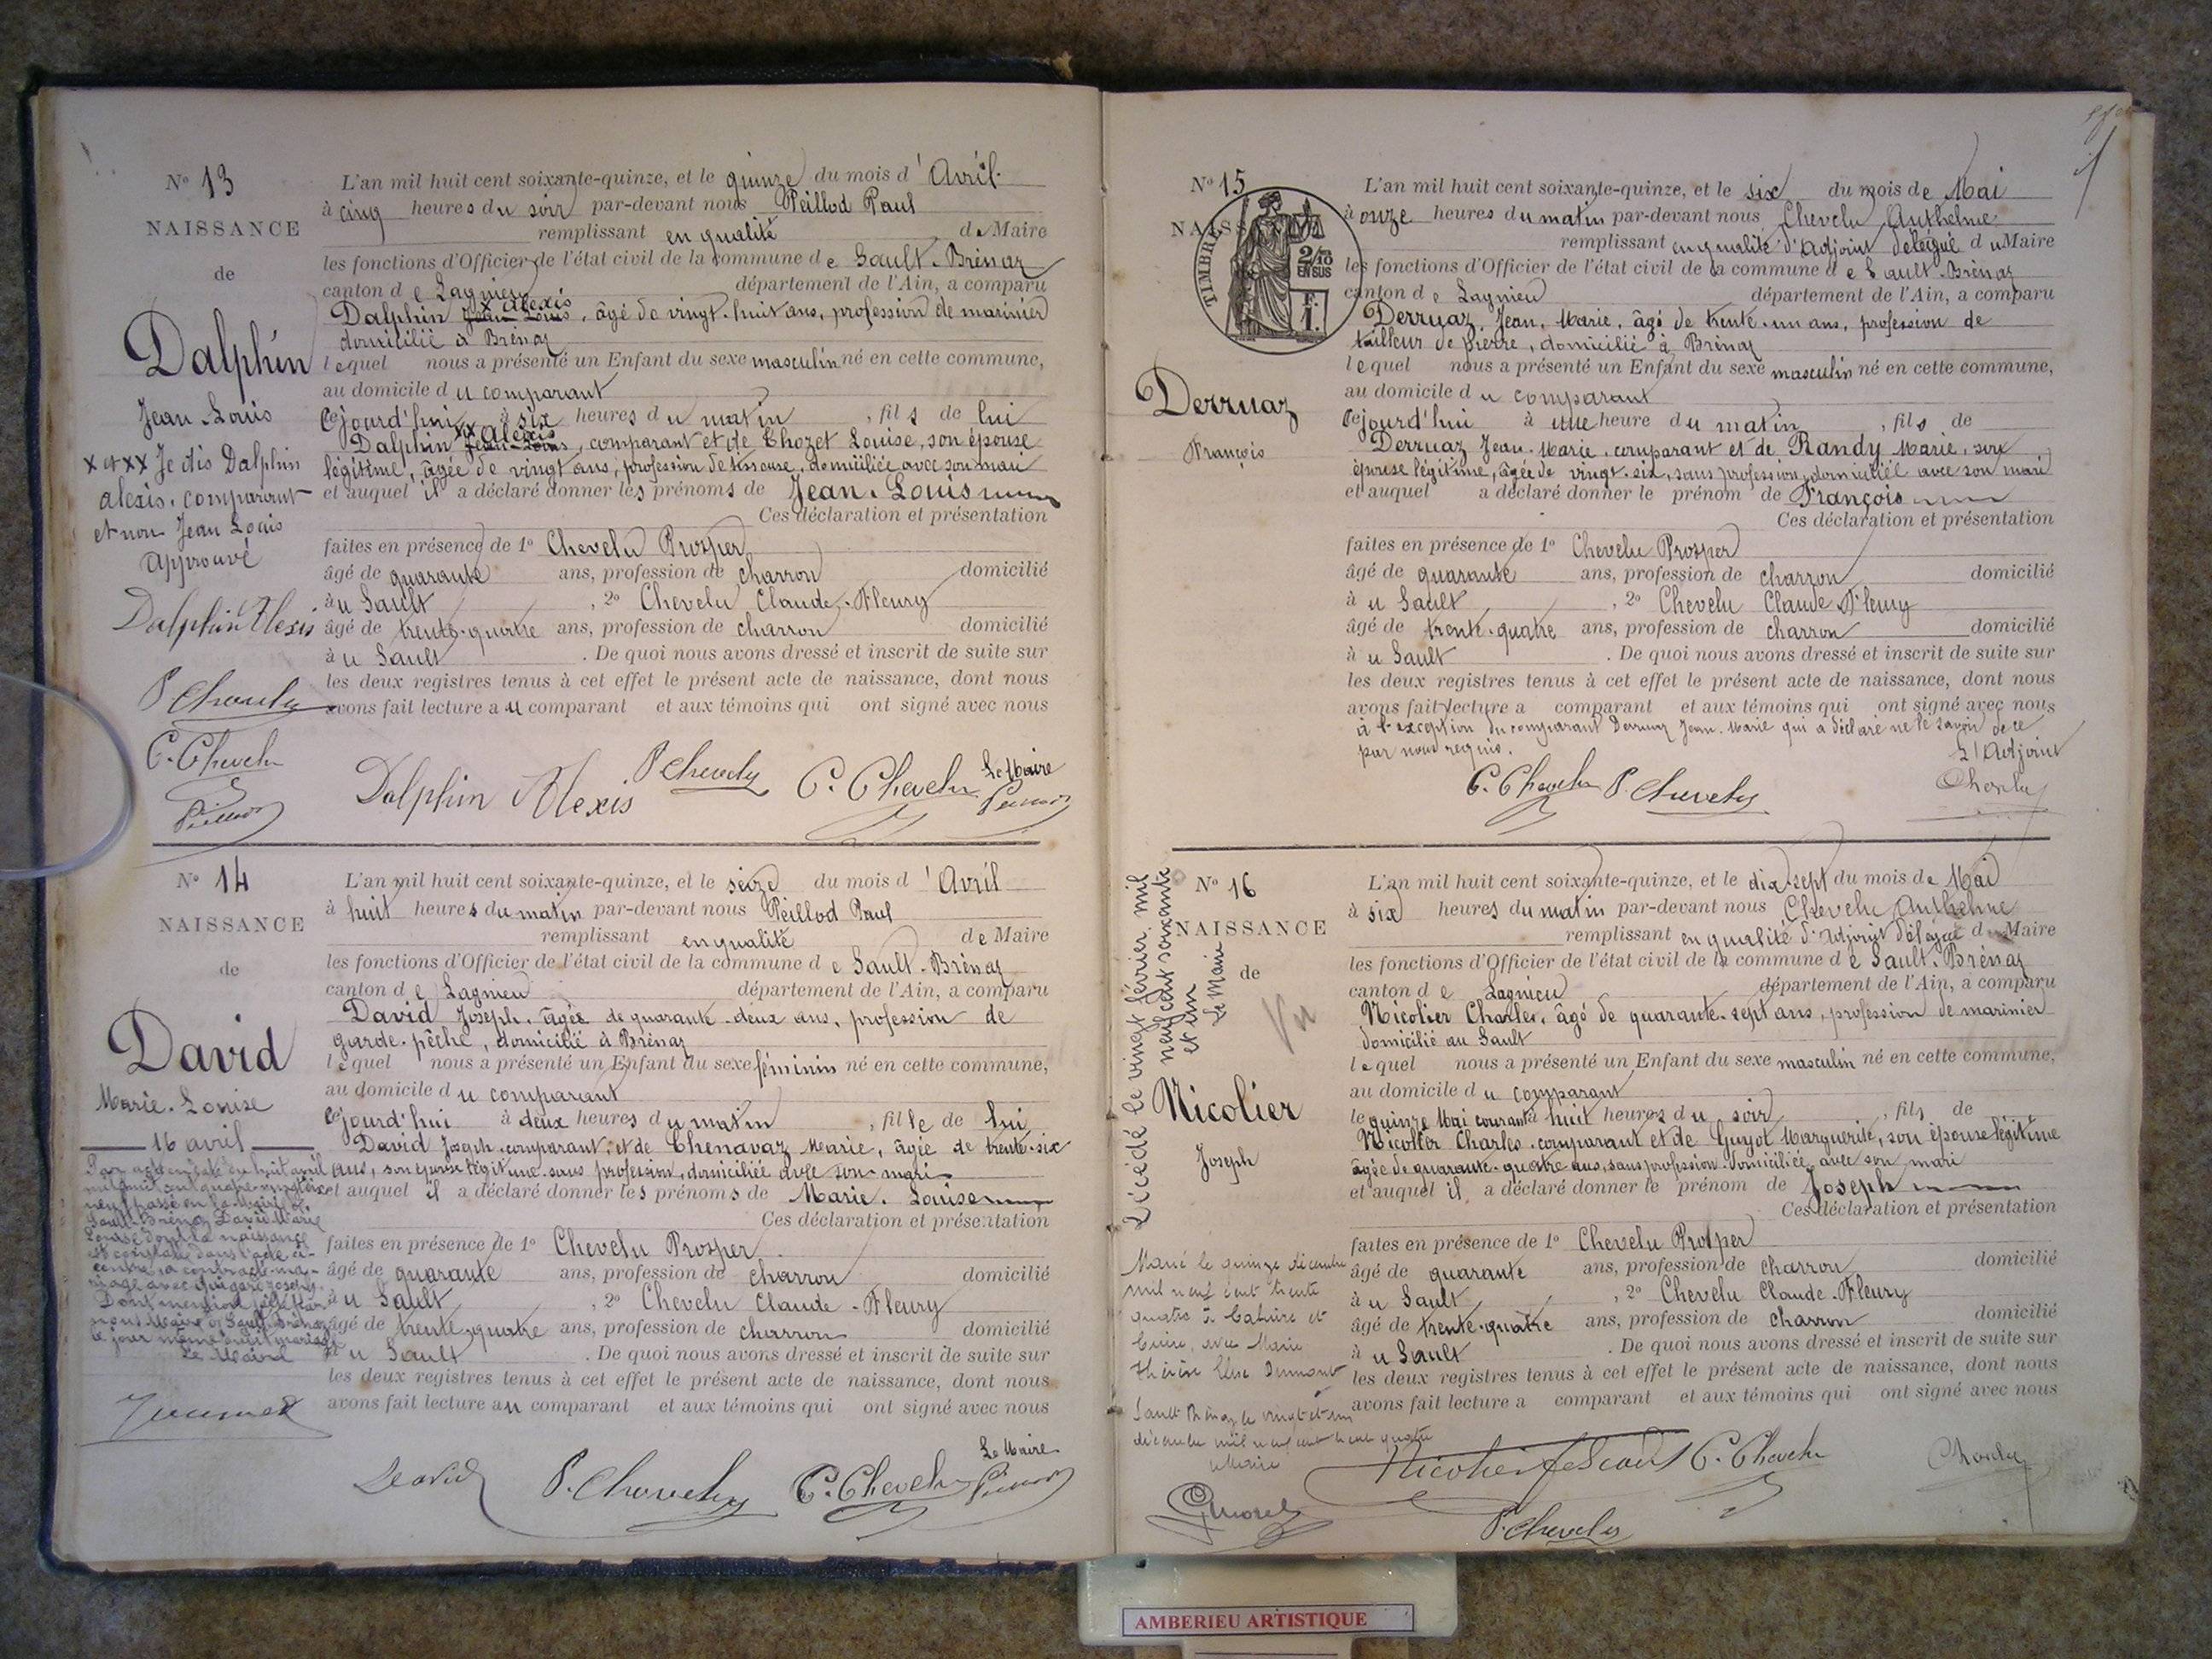 N° 13
NAISSANCE
de
Dalphin
Jean-Louis
x et xx Je dis Dalphin
alexis, comparant
et non Jean Louis
Approuvé
Dalphin Alexis
P Chevelu
C. Chevelu
L'an mil huit cent soixante-quinze, et le quinze du mois d'Avril
à cinq heures du soir par-devant nous Peillod Paul
remplissant en qualité de Maire
les fonctions d'Officier de l'état civil de la commune de Sault-Brénaz
canton de Lagnieu département de l'Ain, a comparu
x alexis
Dalphin Jean-Louis, âgé de vingt-huit ans, profession de marinier
domicilié à Brénaz
lequel nous a présenté un Enfant du sexe masculin né en cette commune,
au domicile du comparant
Cejourd'hui à six heures du matin, fils de lui
xx Alexis
Dalphin Jean-Louis, comparant et de Chozet Louise, son épouse
légitime, âgée de vingt ans, profession de tisseuse, domiciliée avec son mari
et auquel il a déclaré donner les prénoms de Jean-Louis
Ces déclaration et présentation
faites en présence de 1° Chevelu Prosper
âgé de quarante ans, profession de charron domicilié
au Sault, 2° Chevelu Claude-Fleury
âgé de trente-quatre ans, profession de charron domicilié
au Sault. De quoi nous avons dressé et inscrit de suite sur
les deux registres tenus à cet effet le présent acte de naissance, dont nous
avons fait lecture au comparant et aux témoins qui ont signé avec nous
Dalphin Alexis P Chevelu C. Chevelu Le Maire
N° 14
NAISSANCE
de
David
Marie-Louise
16 avril
Par acte en date du huit avril
mil huit cent quatre-vingt-dix
neuf passé en la Mairie de
Sault-Brénaz David Marie
Louise dont la naissance
est constatée dans l'acte ci-
contre a contracté ma-
riage avec
Dont mention faite par
nous Maire de Sault-Brénaz
le jour même dudit mariage
Le Maire
L'an mil huit cent soixante-quinze, et le seize du mois d'Avril
à huit heures du matin par-devant nous Peillod Paul
remplissant en qualité de Maire
les fonctions d'Officier de l'état civil de la commune de Sault-Brénaz
canton de Lagnieu département de l'Ain, a comparu
David Joseph, âgée de quarante-deux ans, profession de
garde-pêche, domicilié à Brénaz
lequel nous a présenté un Enfant du sexe féminin né en cette commune,
au domicile du comparant
Cejourd'hui à deux heures du matin, fille de lui
David Joseph comparant; et de Chenavaz Marie, âgée de trente-six
ans, son épouse légitime sans profession, domiciliée avec son mari
et auquel il a déclaré donner les prénoms de Marie-Louise
Ces déclaration et présentation
faites en présence de 1° Chevelu Prosper
âgé de quarante ans, profession de charron domicilié
au Sault, 2° Chevelu Claude-Fleury
âgé de trente-quatre ans, profession de charron domicilié
au Sault. De quoi nous avons dressé et inscrit de suite sur
les deux registres tenus à cet effet le présent acte de naissance, dont nous
avons fait lecture au comparant et aux témoins qui ont signé avec nous
David P. Chevelu C. Chevelu Le Maire
N° 15
NAISS
TIMBRE
2/10
EN SUS
F.
1.
Derruaz
François
L'an mil huit cent soixante-quinze, et le six du mois de Mai
à onze heures du matin par-devant nous Chevelu Anthelme
remplissant en qualité d'adjoint délégué du Maire
les fonctions d'Officier de l'état civil de la commune de Sault-Brénaz
canton de Lagnieu département de l'Ain, a comparu
Derruaz, Jean, Marie, âgé de trente-un ans, profession de
tailleur de pierre, domicilié à Brénaz
lequel nous a présenté un Enfant du sexe masculin né en cette commune,
au domicile du comparant
Cejourd'hui à une heure du matin, fils de
Derruaz Jean-Marie, comparant et de Randy Marie, son
épouse légitime, âgée de vingt-six, sans profession, domiciliée avec son mari
et auquel a déclaré donner le prénom de François
Ces déclaration et présentation
faites en présence de 1° Chevelu Prosper
âgé de quarante ans, profession de charron domicilié
au Sault, 2° Chevelu Claude Fleury
âgé de trente-quatre ans, profession de charron domicilié
au Sault. De quoi nous avons dressé et inscrit de suite sur
les deux registres tenus à cet effet le présent acte de naissance, dont nous
avons fait lecture a comparant et aux témoins qui ont signé avec nous
à l'exception du comparant Derruaz Jean-Marie qui a déclaré ne le savoir de ce
par nous requis.
L'Adjoint
C. Chevelu P. Chevelu Chevelu
N° 16
NAISSANCE
de
Vu
Nicolier
Joseph
Décédé le vingt février mil
neuf cent soixante
et un
Le Maire
Marié le quinze décembre
mil neuf cent trente
quatre à Caluire et
Cuire, avec Marie
Thérèse Dumont
Sault Brénaz le vingt et un
décembre mil neuf cent trente quatre
Le Maire
Morel
L'an mil huit cent soixante-quinze, et le dix-sept du mois de Mai
à six heures du matin par-devant nous Chevelu Anthelme
remplissant en qualité d'adjoint délégué du Maire
les fonctions d'Officier de l'état civil de la commune de Sault-Brénaz
canton de Lagnieu département de l'Ain, a comparu
Nicolier Charles, âgé de quarante-sept ans, profession de marinier
domicilié au Sault
lequel nous a présenté un Enfant du sexe masculin né en cette commune,
au domicile du comparant
le quinze Mai courant à huit heures du soir, fils de
Nicolier Charles comparant et de Guyot Marguerite, son épouse légitime
âgée de quarante-quatre ans, sans profession domiciliée avec son mari
et auquel il a déclaré donner le prénom de Joseph
Ces déclaration et présentation
faites en présence de 1° Chevelu Prosper
âgé de quarante ans, profession de charron domicilié
au Sault, 2° Chevelu Claude-Fleury
âgé de trente-quatre ans, profession de charron domicilié
au Sault. De quoi nous avons dressé et inscrit de suite sur
les deux registres tenus à cet effet le présent acte de naissance, dont nous
avons fait lecture a comparant et aux témoins qui ont signé avec nous
Nicolier C. Chevelu Chevelu
P. Chevelu
AMBERIEU ARTISTIQUE